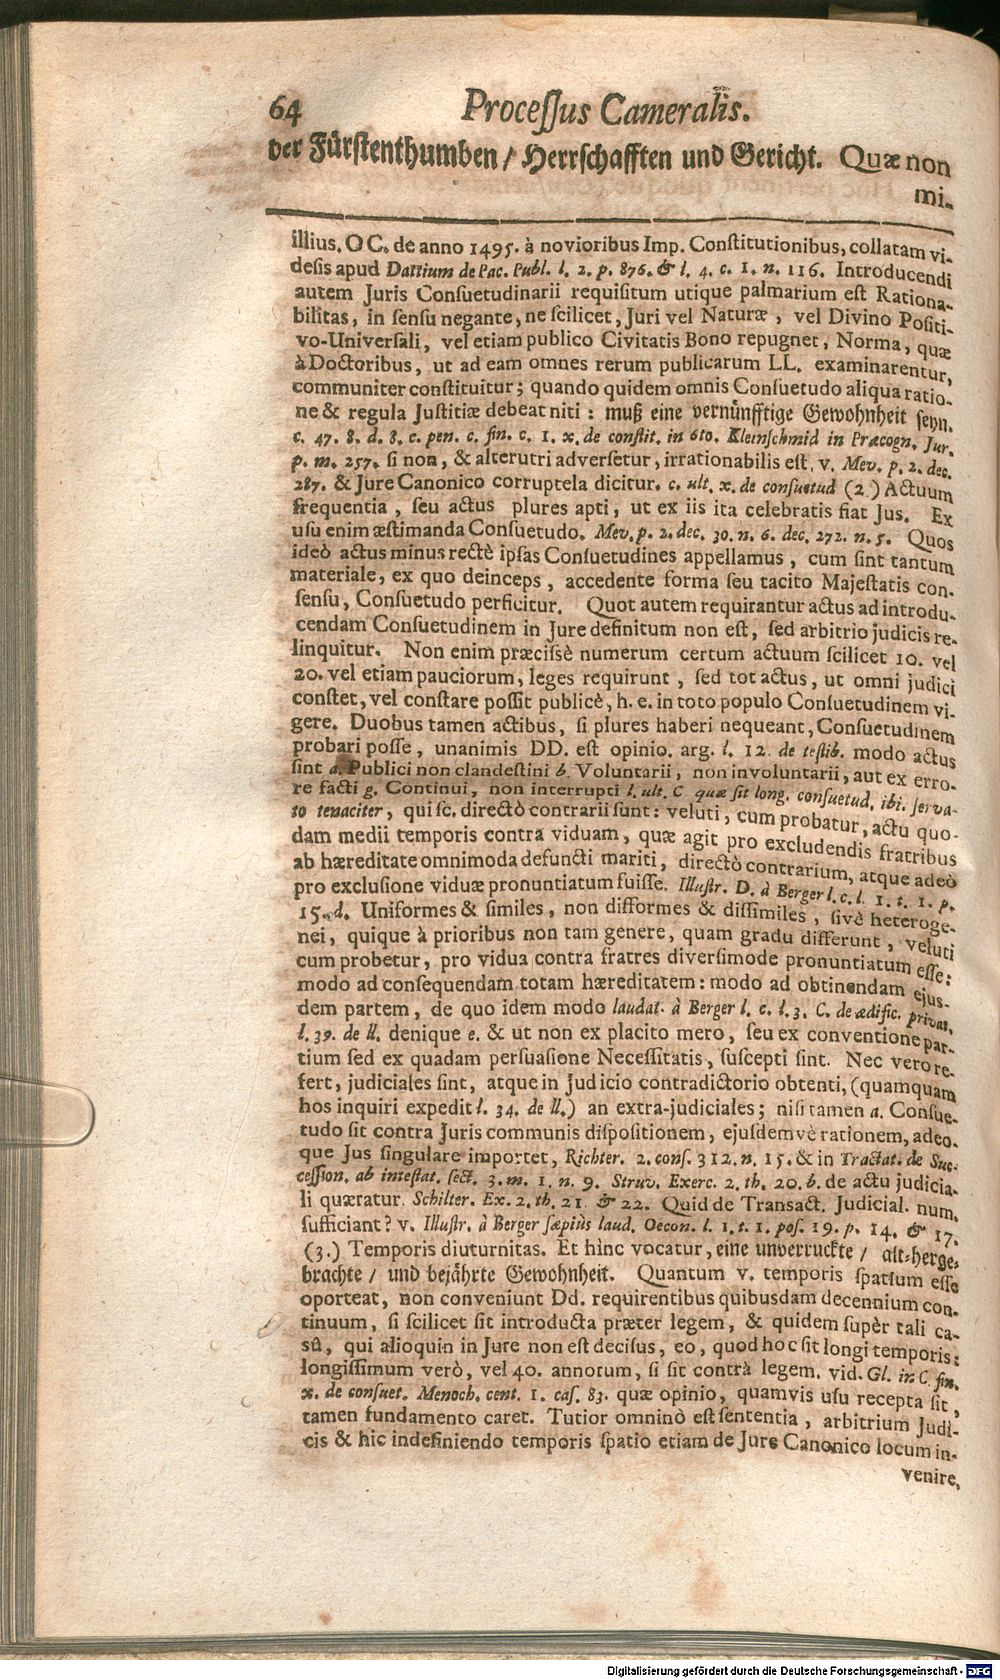 64 Processus Cameralis.
der Fürstenthumben / Herrschafften und Gericht. Quæ non
mi-
illius. O C. de anno 1495. à novioribus Imp. Constitutionibus, collatam vi-
desis apud Dattium de Pac. Publ. l. 2. p. 876. & l. 4. c. 1. n. 116. Introducendi
autem Juris Consuetudinarii requisitum utique palmarium est Rationa-
bilitas, in sensu negante, ne scilicet, Juri vel Naturæ, vel Divino Positi-
vo-Universali, vel etiam publico Civitatis Bono repugnet, Norma, quæ
à Doctoribus, ut ad eam omnes rerum publicarum LL. examinarentur,
communiter constituitur; quando quidem omnis Consuetudo aliqua ratio-
ne & regula Justitiæ debeat niti: muß eine vernünfftige Gewohnheit seyn.
c. 47. 8. d. 8. c. pen. c. fin. c. 1. x. de constit. in 6to. Kleinschmid in Præcogn. Jur.
p. m. 257. si non, & alterutri adversetur, irrationabilis est. v. Mev. p. 2. dec.
287. & Jure Canonico corruptela dicitur. c. ult. x. de consuetud (2.) Actuum
frequentia, seu actus plures apti, ut ex iis ita celebratis fiat Jus. Ex
usu enim æstimanda Consuetudo. Mev. p. 2. dec. 30. n. 6. dec. 272. n. 5. Quos
ideò actus minus rectè ipsas Consuetudines appellamus, cum sint tantum
materiale, ex quo deinceps, accedente forma seu tacito Majestatis con-
sensu, Consuetudo perficitur. Quot autem requirantur actus ad introdu-
cendam Consuetudinem in Jure definitum non est, sed arbitrio judicis re-
linquitur. Non enim præcissè numerum certum actuum scilicet 10. vel
20. vel etiam pauciorum, leges requirunt, sed tot actus, ut omni judici
constet, vel constare possit publicè, h. e. in toto populo Consuetudinem vi-
gere. Duobus tamen actibus, si plures haberi nequeant, Consuetudinem
probari posse, unanimis DD. est opinio. arg. l. 12. de testib. modo actus
sint a. Publici non clandestini b. Voluntarii, non involuntarii, aut ex erro-
re facti g. Continui, non interrupti l. ult. C quæ sit long. consuetud. ibi. serva-
to tenaciter, qui sc. directò contrarii sunt: veluti, cum probatur, actu quo-
dam medii temporis contra viduam, quæ agit pro excludendis fratribus
ab hæreditate omnimoda defuncti mariti, directò contrarium, atque adeò
pro exclusione viduæ pronuntiatum fuisse. Illustr. D. à Berger l. c. l. 1. t. 1. p.
15. d. Uniformes & similes, non difformes & dissimiles, sivè heteroge-
nei, quique à prioribus non tam genere, quam gradu differunt, veluti
cum probetur, pro vidua contra fratres diversimode pronuntiatum esse:
modo ad consequendam totam hæreditatem: modo ad obtinendam ejus-
dem partem, de quo idem modo laudat. à Berger l. c. l. 3. C. de ædific. privat.
l. 39. de ll. denique e. & ut non ex placito mero, seu ex conventione par-
tium sed ex quadam persuasione Necessitatis, suscepti sint. Nec vero re-
fert, judiciales sint, atque in Judicio contradictorio obtenti, (quamquam
hos inquiri expedit l. 34. de ll.) an extra-judiciales; nisi tamen a. Consue-
tudo sit contra Juris communis dispositionem, ejusdemvè rationem, adeo-
que Jus singulare importet, Richter. 2. cons. 312. n. 15. & in Tractat. de Suc-
cession. ab intestat. sect. 3. m. 1. n. 9. Struv. Exerc. 2. th. 20. b. de actu judicia-
li quæratur. Schilter. Ex. 2. th. 21. & 22. Quid de Transact. Judicial. num.
sufficiant? v. Illustr. à Berger sæpiùs laud. Oecon. l. 1. t. 1. pos. 19. p. 14. & 17.
(3.) Temporis diuturnitas. Et hinc vocatur, eine unverruckte / alt-herge-
brachte / und bejährte Gewohnheit. Quantum v. temporis spatium esse
oporteat, non conveniunt Dd. requirentibus quibusdam decennium con-
tinuum, si scilicet sit introducta præter legem, & quidem supèr tali ca-
sû, qui alioquin in Jure non est decisus, eo, quod hoc sit longi temporis:
longissimum verò, vel 40. annorum, si sit contrà legem. vid. Gl. in C. fin.
x. de consuet. Menoch. cent. 1. cas. 83. quæ opinio, quamvis usu recepta sit,
tamen fundamento caret. Tutior omninò est sententia, arbitrium Judi-
cis & hic indefiniendo temporis spatio etiam de Jure Canonico locum in-
venire,
Digitalisierung gefördert durch die Deutsche Forschungsgemeinschaft - DFG